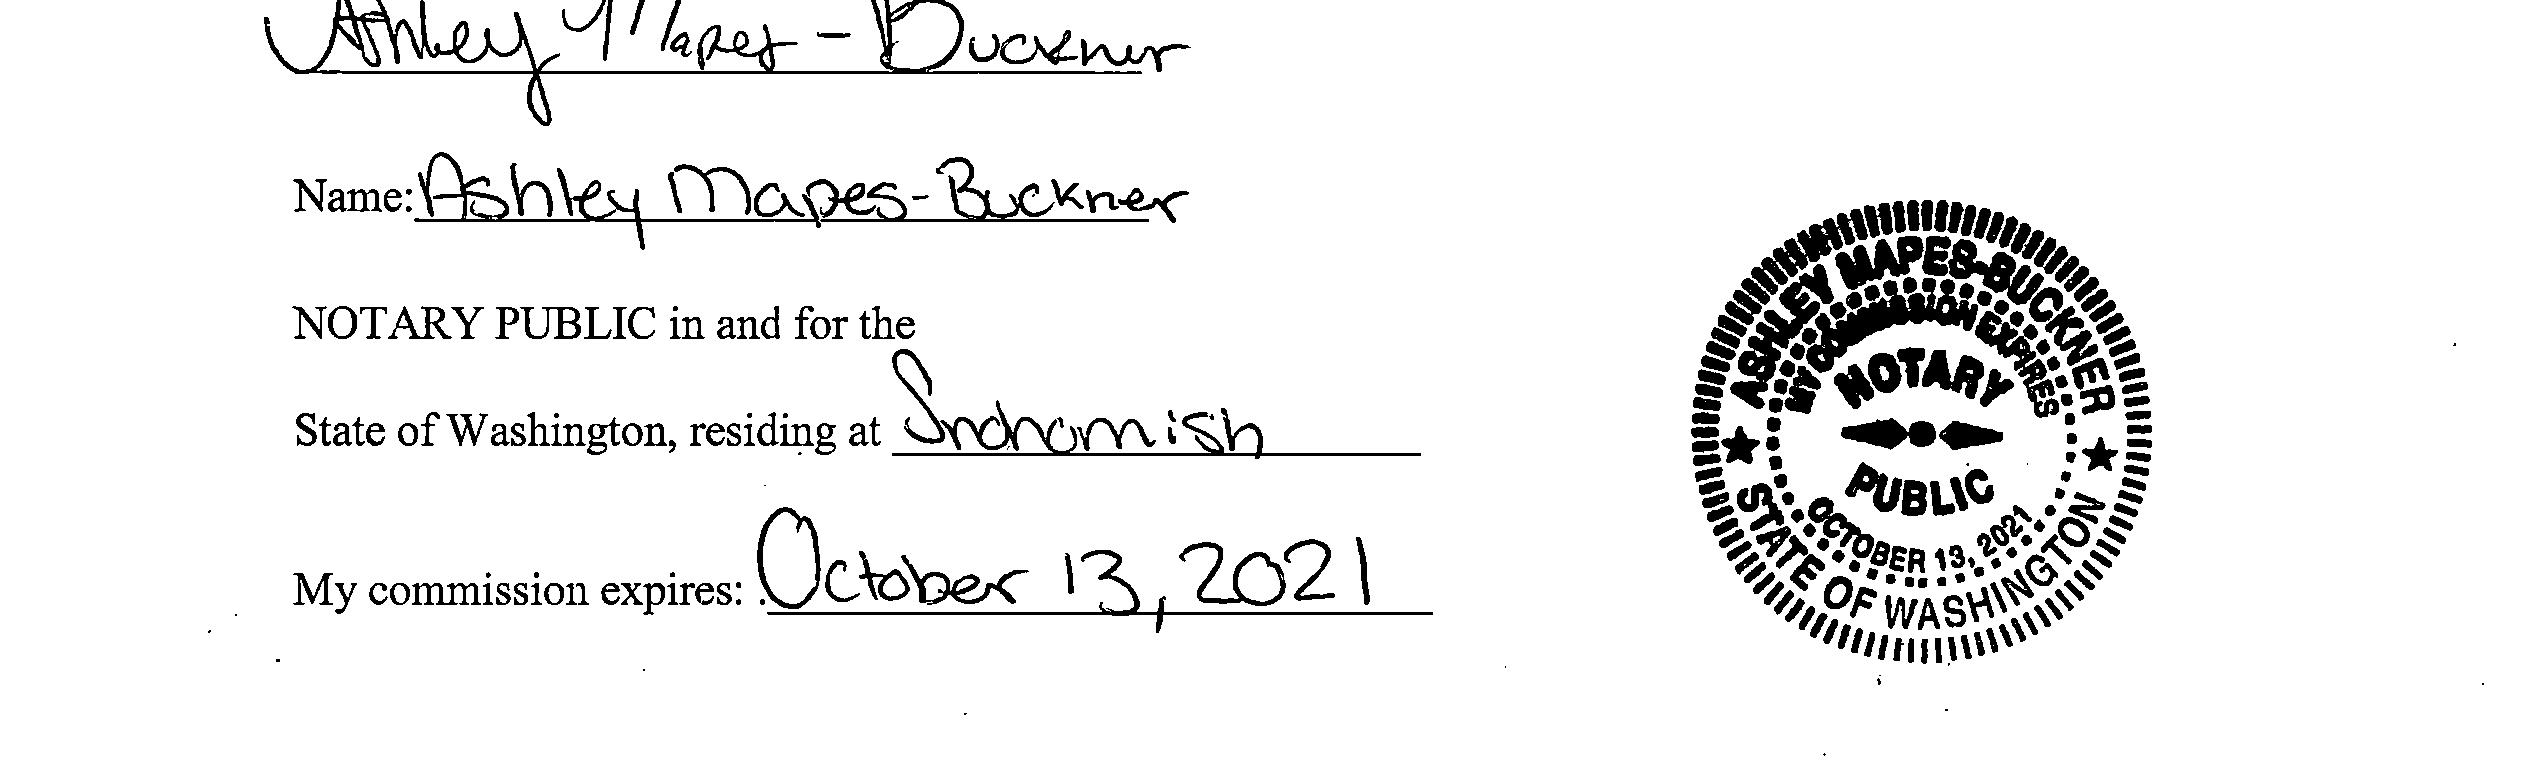 Ashley Mapes - Buckner
Name: Ashley Mapes-Buckner
NOTARY PUBLIC in and for the
State of Washington, residing at Snohomish
My commission expires: October 13, 2021
ASHLEY MAPES-BUCKNER
MY COMMISSION EXPIRES
NOTARY
PUBLIC
OCTOBER 13, 2021
STATE OF WASHINGTON